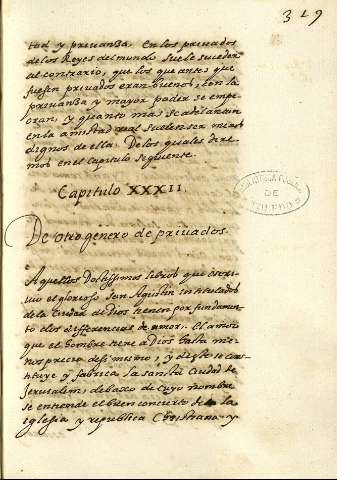 319
tud y privanza. En los privados
de los Reyes del mundo suele suceder
al contrario, que los que antes que
fuesen privados eran buenos, con la
privanza y mayor poder se empe
oran y quanto mas se adelantan
en la amistad real suelen ser menos
dignos de ella. De los quales dire
mos en el capitulo siguiente.
Capitulo XXXII.
De otro genero de privados.
Aquellos Doctissimos libros que escri
vio el glorioso San Agustin intitulados
de la Ciudad de Dios tienen por fundamen
to dos differencias de amor. El amor
que el hombre tiene a Dios hasta me
nosprecio de si mismo, y deste se cons
tituye y fabrica la sancta Ciudad de
Jerusalem, debaxo de cuyo nombre
se entiende el buen concierto de la
iglesia y republica Christiana y
BIBLIOTECA PUBLICA
DE
TOLEDO